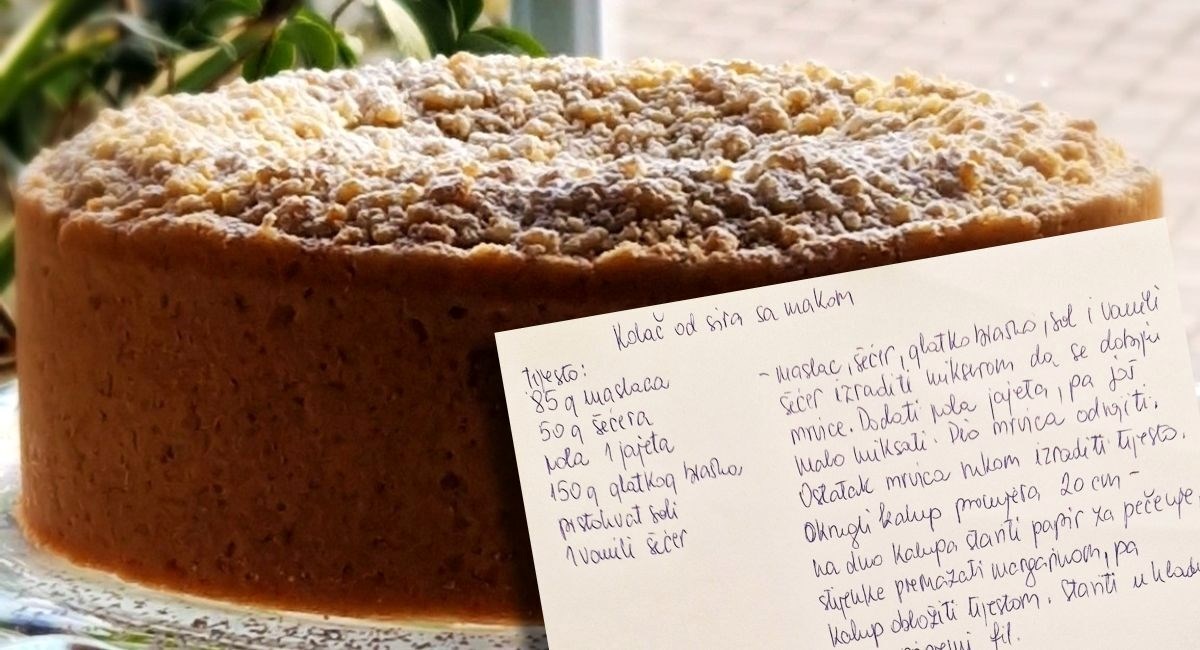 Kolač od sira sa makom
tijesto:
85 g maslaca
50 g šećera
pola 1 jajeta
150 g glatkog brašna
prstohvat soli
1 vanili šećer
- maslac, šećer, glatko brašno, sol i vanili
šećer izraditi mikserom da se dobiju
mrvice. Dodati pola jajeta, pa još
malo miksati. Dio mrvica odvojiti.
Ostatak mrvica rukom izraditi tijesto.
Okrugli kalup promjera 20 cm -
na dno kalupa staviti papir za pečenje,
stijenke premazati margarinom, pa
kalup obložiti tijestom. Staviti u hladn
fil.